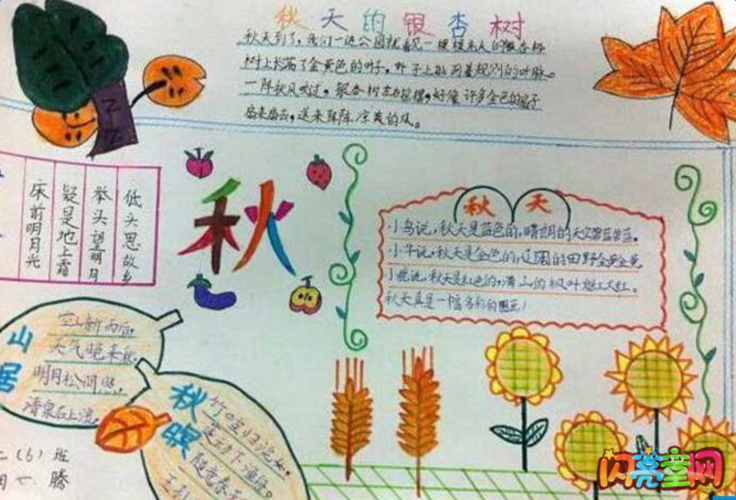 秋天的银杏树
秋天到了，我们一进公园就看见一棵棵高大的银杏树
树上长满了金黄色的叶子，叶子上排列着规则的叶脉。
一阵秋风吹过，银杏树左右摇摆，好像许多金色的扇子
扇来扇去，送来阵阵凉爽的风。
床前明月光
疑是地上霜
举头望明月
低头思故乡
秋
秋天
小鸟说，秋天是蓝色的，晴朗的天空碧蓝碧蓝。
小牛说，秋天是金色的，
的田野金黄金黄
秋天是红色的，
的枫叶
秋天真是一幅多彩的图画！
山居
空山新雨后
天气晚来秋
明月松间照
清泉石上流
秋暝
竹喧归浣女
莲动下渔舟
随意春
王孙
(6)班
腾
闪亮童网